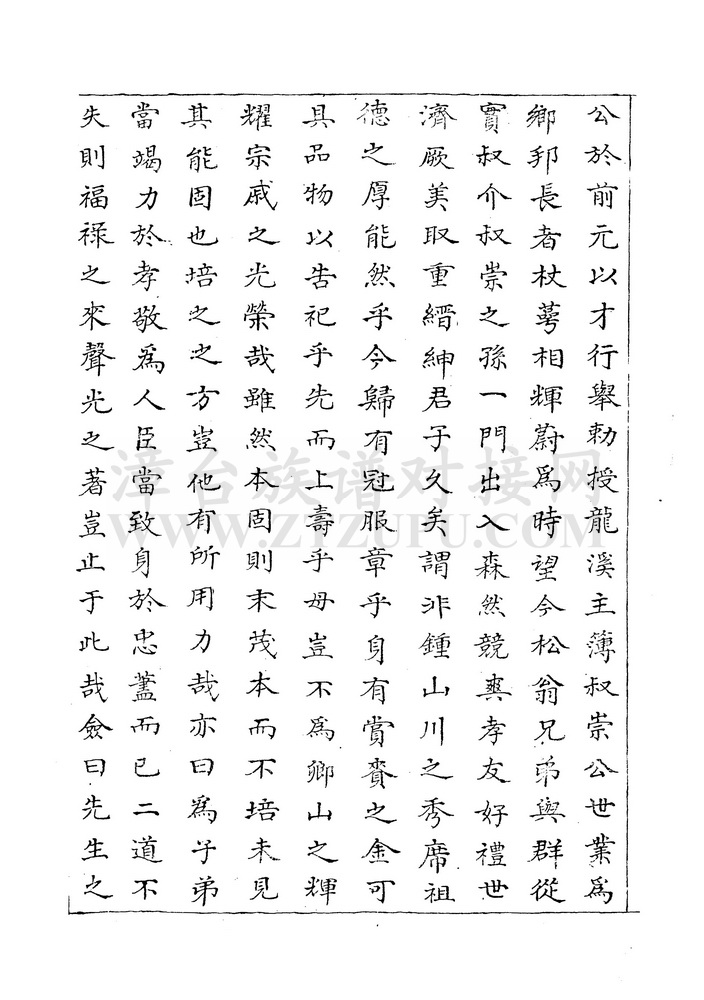 公於前元以才行舉勅授龍溪主簿叔崇公世業爲
鄉邦長者杖蕚相輝蔚爲時望今松翁兄弟與群從
實叔介叔崇之孫一門出入森然競爽孝友好禮世
濟厥美取重縉紳君子久矣謂非鍾山川之秀席祖
德之厚能然乎今歸有冠服章乎身有賞賚之金可
具品物以告祀乎先而上壽乎母豈不爲鄉山之輝
耀宗戚之光榮哉雖然本固則末茂本而不培未見
其能固也培之之方豈他有所用力哉亦曰爲子弟
當竭力於孝敬爲人臣當致身於忠藎而已二道不
失則福祿之來聲光之著豈止于此哉僉曰先生之
漳台族谱对接网
WWW.ZTZUPU.COM